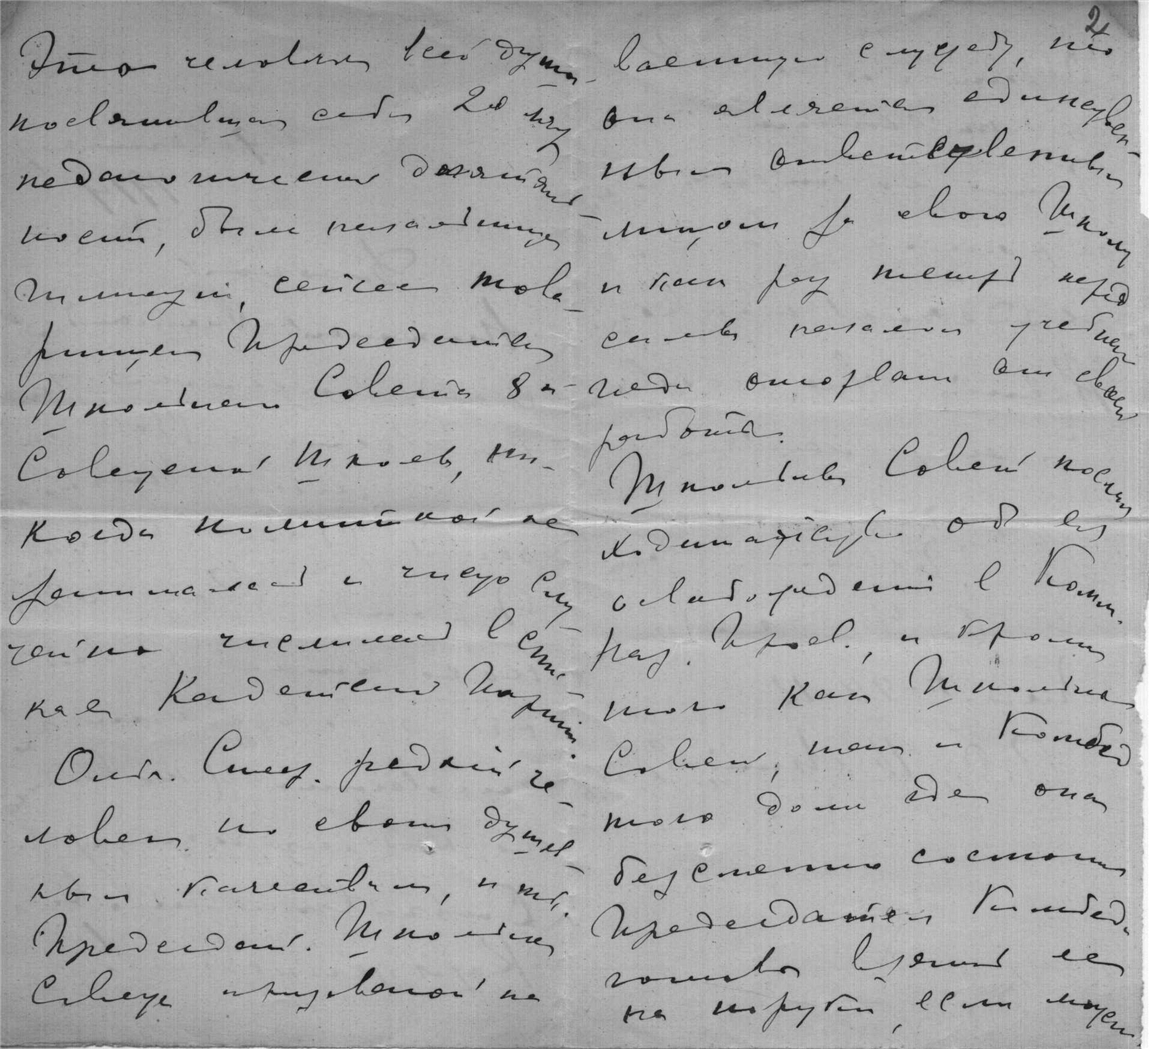 2
Это человек всей души
посвятивший себя 20 лет
педагогической деятель-
ности, была начальницей
гимназии, сейчас това-
рищем Председателя
Школьного Совета 8-и
Совецкой Школы, ни-
когда политикой не
занималась и чисто слу
чайно числилась в спис-
ках Кадетской Партии.
Ольга. редкий че-
ловек по своим душев-
ным качествам, и т.к.
Председат. Школьного
Совета призванной на
военную службу, то
она является единствен-
ным ответственным
лицом за свою Школу
и как раз теперь перед
самым началом учебного
года оторвали от своей
работы.
Школьный Совет послал
ходатайство об ея
освобождении в Комм.
Нар. Просв., и кроме
того как Школьный
Совет, так и Комбед
того дома где она
безсменно состоит
Председателем Комбеда,
готовы взять ее
на поруки, если может